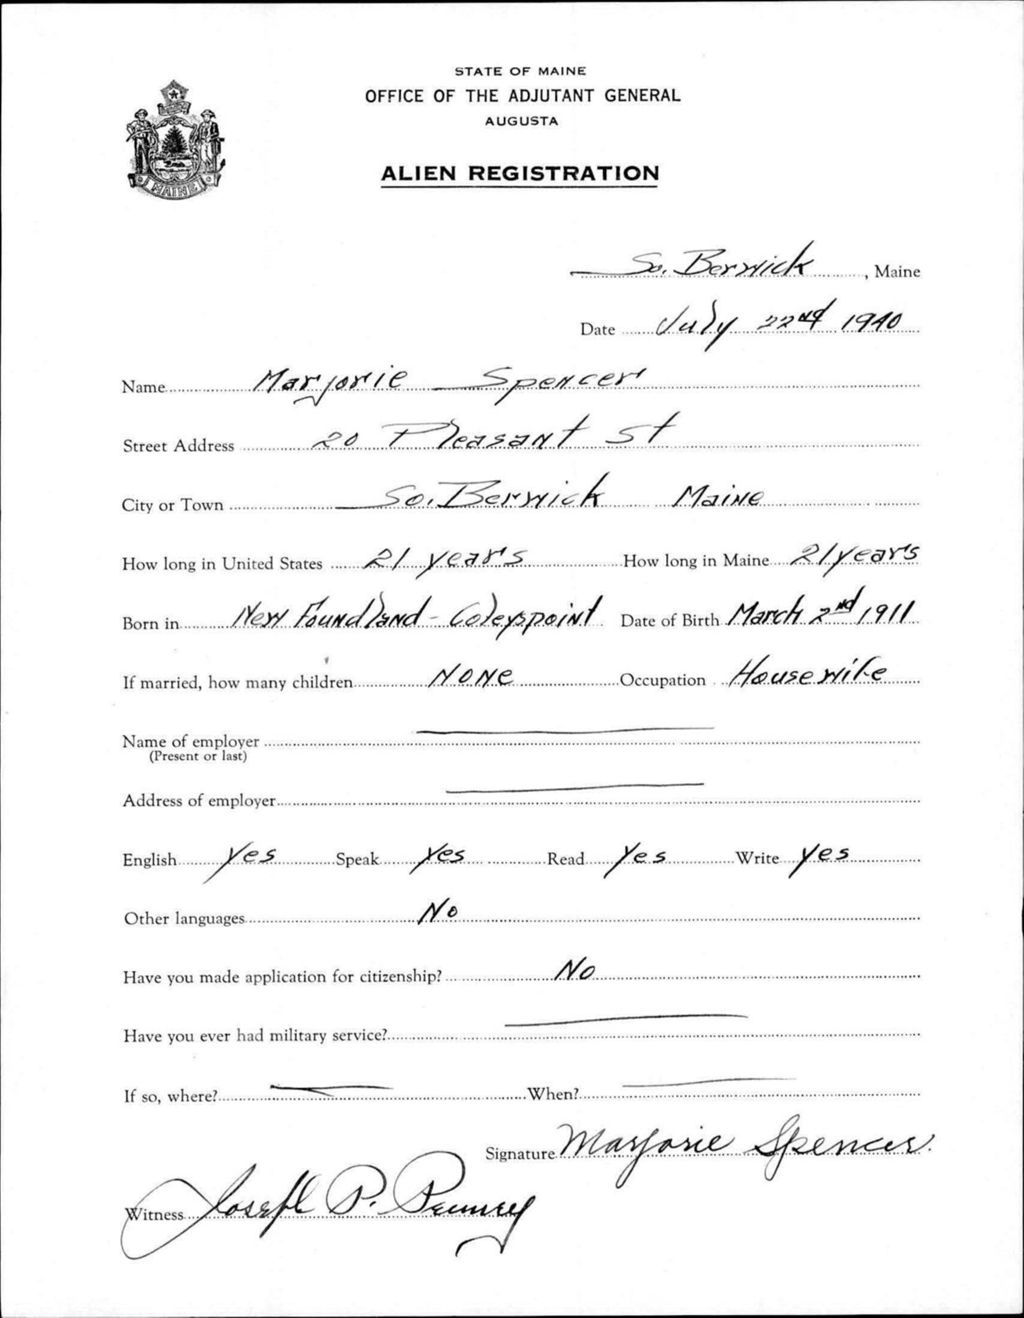 STATE OF MAINE
OFFICE OF THE ADJUTANT GENERAL
AUGUSTA
ALIEN REGISTRATION
MAINE
So. Berwick, Maine
Date July 22nd 1940
Name Marjorie Spencer
Street Address 20 Pleasant St
City or Town So. Berwick Maine
How long in United States 21 years How long in Maine 21 years
Born in New Foundland - Coleyspoint Date of Birth March 2nd 1911
If married, how many children None Occupation Housewife
Name of employer
(Present or last)
Address of employer
English Yes Speak Yes Read Yes Write Yes
Other languages No
Have you made application for citizenship? No
Have you ever had military service?
If so, where? When?
Signature Marjorie Spencer.
Witness Joseph P. Penney